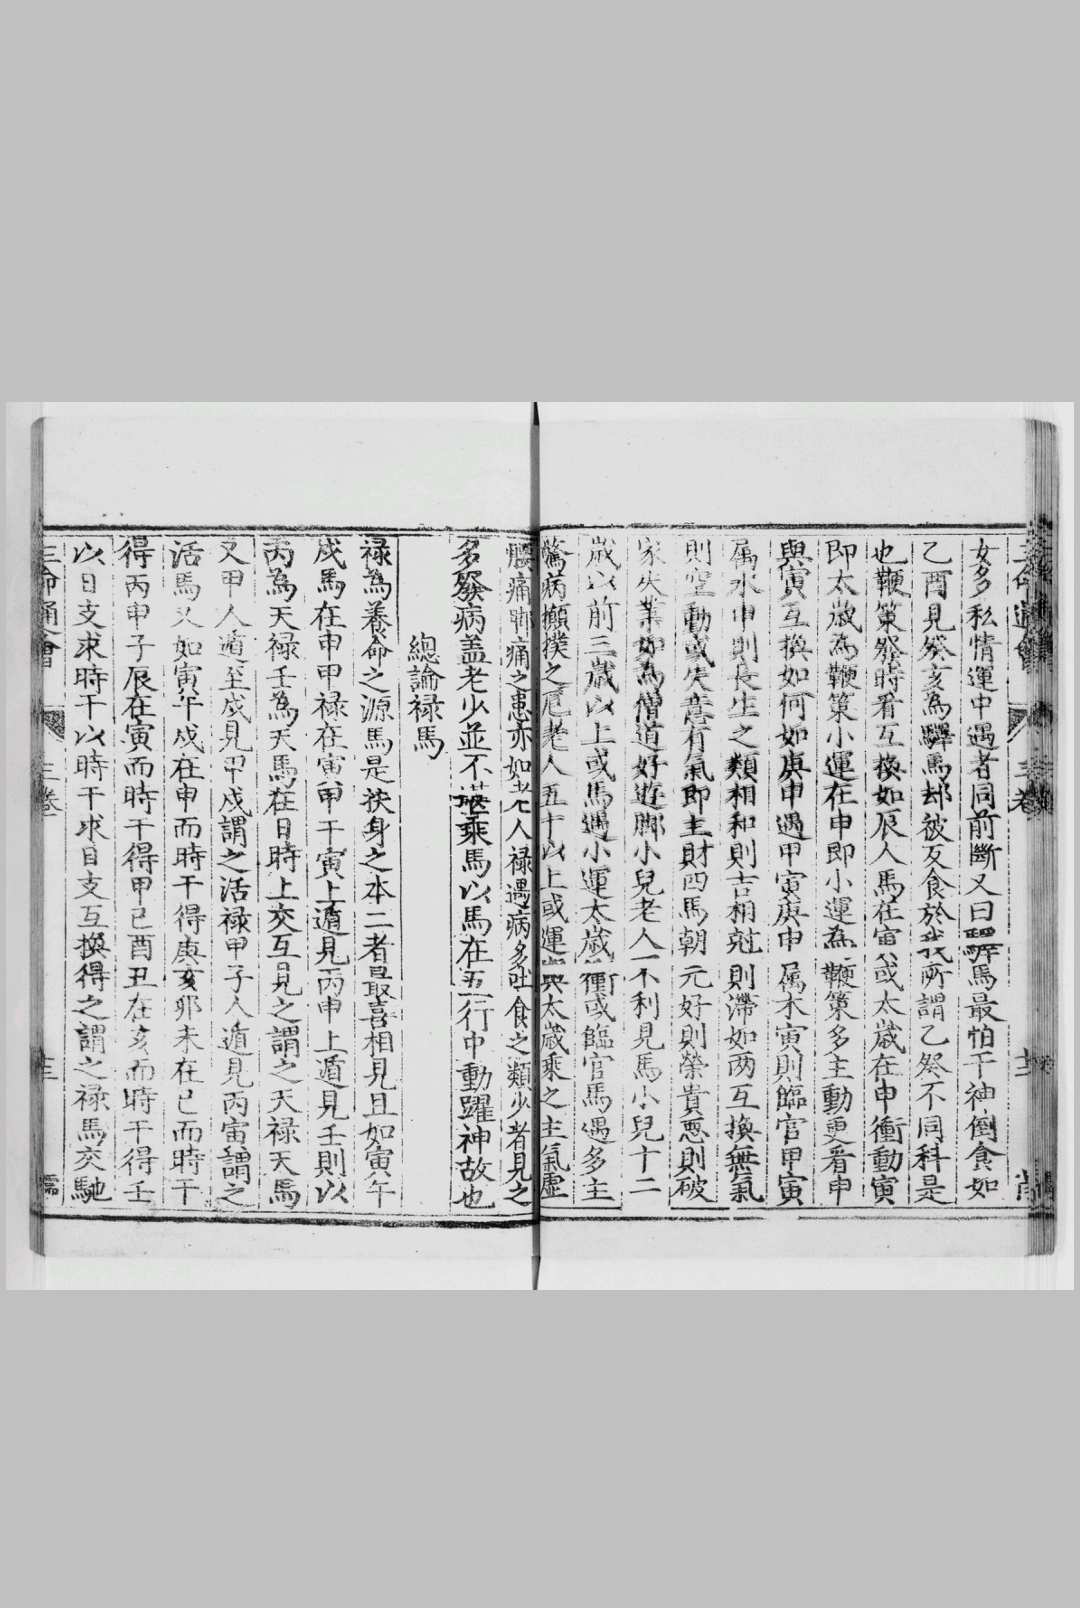 三命通會 三卷
女多私情運中遇者同前斷又曰驛馬最怕干神倒食如
乙酉見癸亥為驛馬却被反食於我所謂乙癸不同科是
也鞭策祭時看互換如辰人馬在寅或太歲在申衝動寅
即太歲為鞭策小運在申即小運為鞭策多主動更看申
與寅互換如何如庚申遇甲寅庚申属木寅則臨官甲寅
属水申則長生之類相和則吉相尅則滯如两互換無氣
則空動或失意有氣即主財四馬朝元好則榮貴惡則破
家失業如為僧道好遊脚小兒老人一不利見馬小兒十二
歲以前三歲以上或馬遇小運太歲衝或臨官馬遇多主
驚病攧撲之厄老人五十以上或運與太歲乘之主氣虛
腰痛脚痛之患亦如老人禄遇病多吐食之類少者見之
多發病盖老少並不堪乘馬以馬在五行中動躍神故也
總論禄馬
禄為養命之源馬是扶身之本二者最喜相見且如寅午
戌馬在申甲禄在寅甲干寅上遁見丙申上遁見壬則以
丙為天禄壬為天馬在日時上交互見之謂之天禄天馬
又甲人遁至戌見甲戌謂之活禄甲子人遁見丙寅謂之
活馬又如寅午戌在申而時干得庚亥卯未在巳而時干
得丙申子辰在寅而時干得甲巳酉丑在亥而時干得壬
以日支求時干以時干求日支互換得之謂之禄馬交馳
三命通會 三卷 十三